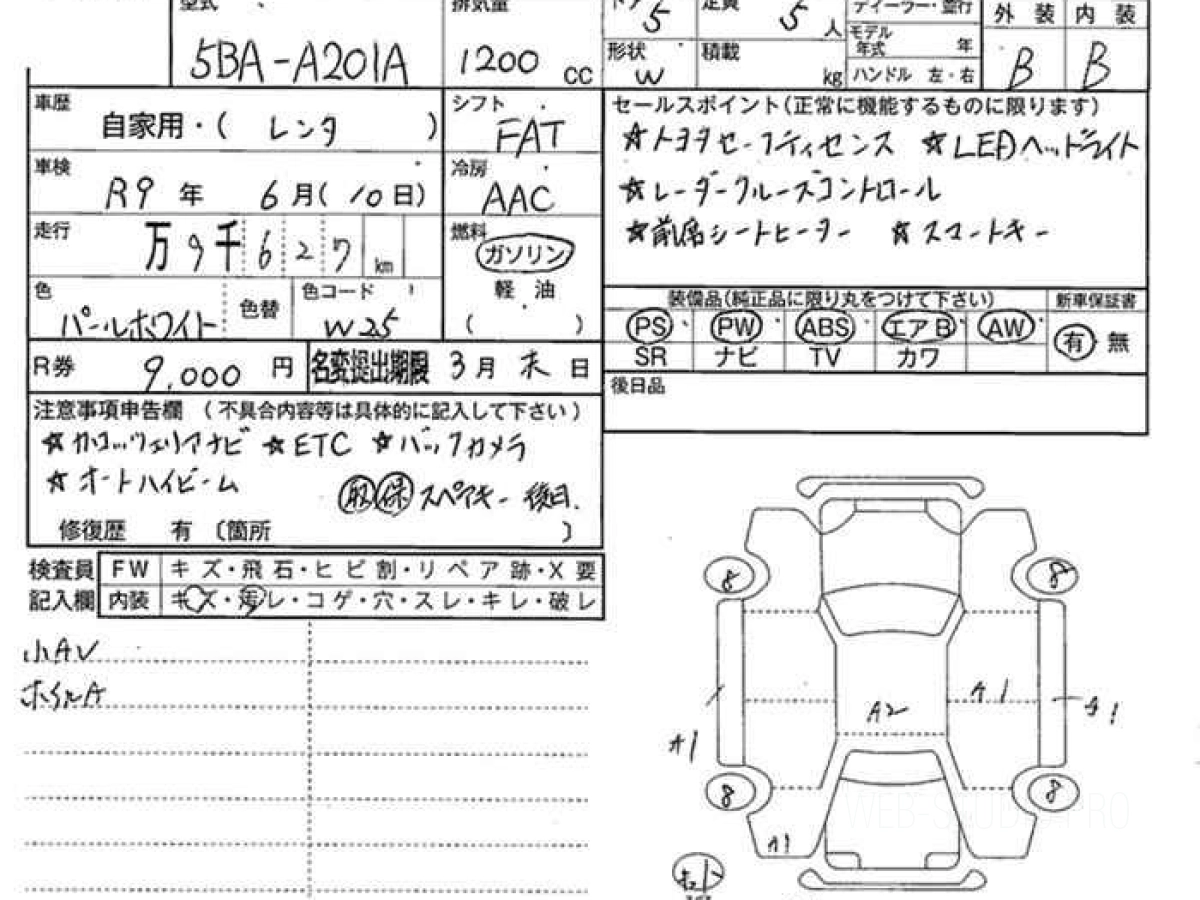 型式 排気量 ドア 5 定員 5 人 ディーラー・並行 外装 内装
モデル年式 年
5BA-A201A 1200 CC 形状 W 積載 kg ハンドル 左・右 B B
車歴 自家用・( レンタ ) シフト FAT セールスポイント(正常に機能するものに限ります)
☆トヨタセーフティセンス ☆LEDヘッドライト
車検 R9 年 6 月( 10 日) 冷房 AAC ☆レーダークルーズコントロール
走行 万 9 千 6 2 7 km 燃料 ガソリン ☆前席シートヒーター ☆スマートキー
軽油
色 パールホワイト 色替 色コード W25 ( ) 装備品(純正品に限り丸をつけて下さい) 新車保証書
PS PW ABS エアB AW 有 無
SR ナビ TV カワ
R券 9,000 円 名変提出期限 3月 末 日 後日品
注意事項申告欄 (不具合内容等は具体的に記入して下さい)
☆カロッツェリアナビ ☆ETC ☆バックカメラ
☆オートハイビーム 取 保 スペアキー後日.
修復歴 有 〔箇所 〕
検査員 FW キズ・飛石・ヒビ割・リペア跡・X要
記入欄 内装 キズ・汚レ・コゲ・穴・スレ・キレ・破レ
小AV
ホイルA
8 8
A2 A1 A1
A1
8 8
A1
WEB-SSUDB.PRO